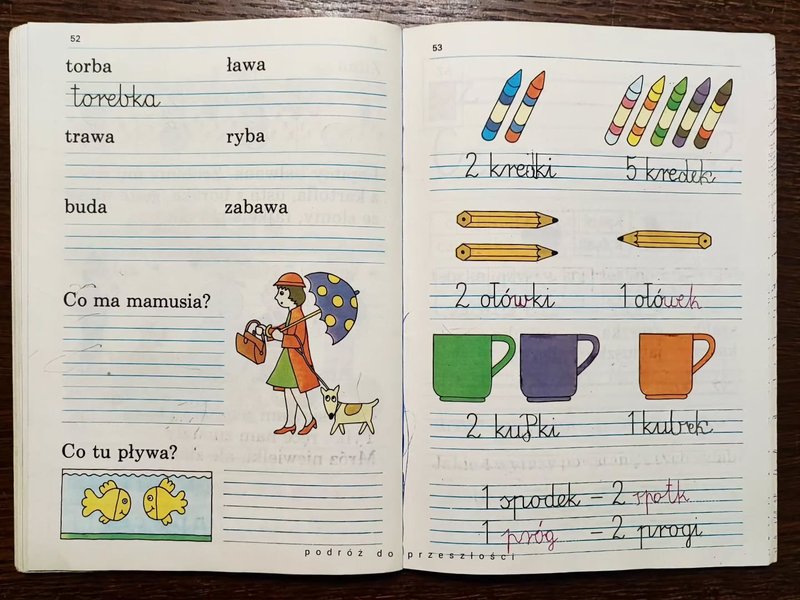 52
torba ława
torebka
trawa ryba
buda zabawa
Co ma mamusia?
Co tu pływa?
53
2 kredki 5 kredek
2 ołówki 1 ołówek
2 kubki 1 kubek
1 spodek – 2 spodk
1 próg – 2 progi
podróż do przeszłości